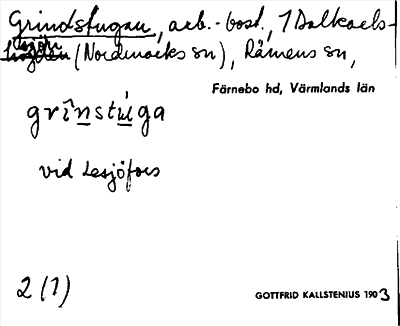 Grindstugan, arb.-bost., 1 Dalkarls-
sjön (Nordmarks sn), Rämens sn,
Färnebo hd, Värmlands län
grînstúga
vid Lesjöfors
2 (1)
GOTTFRID KALLSTENIUS 1903